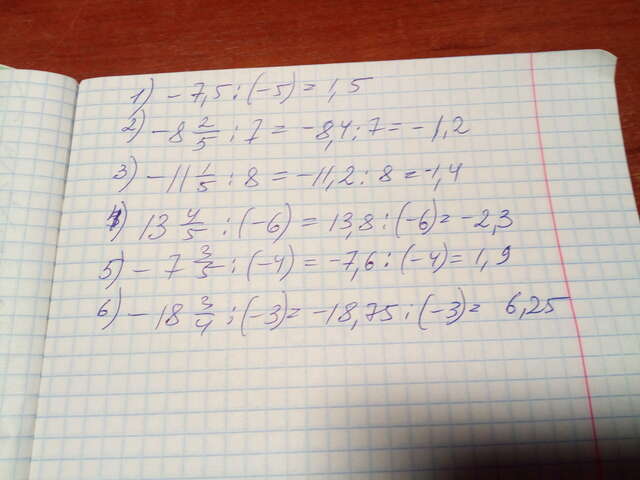 1) -7,5 : (-5) = 1,5
2) -8 2/5 : 7 = -8,4 : 7 = -1,2
3) -11 1/5 : 8 = -11,2 : 8 = -1,4
4) 13 4/5 : (-6) = 13,8 : (-6) = -2,3
5) -7 3/5 : (-4) = -7,6 : (-4) = 1,9
6) -18 3/4 : (-3) = -18,75 : (-3) = 6,25